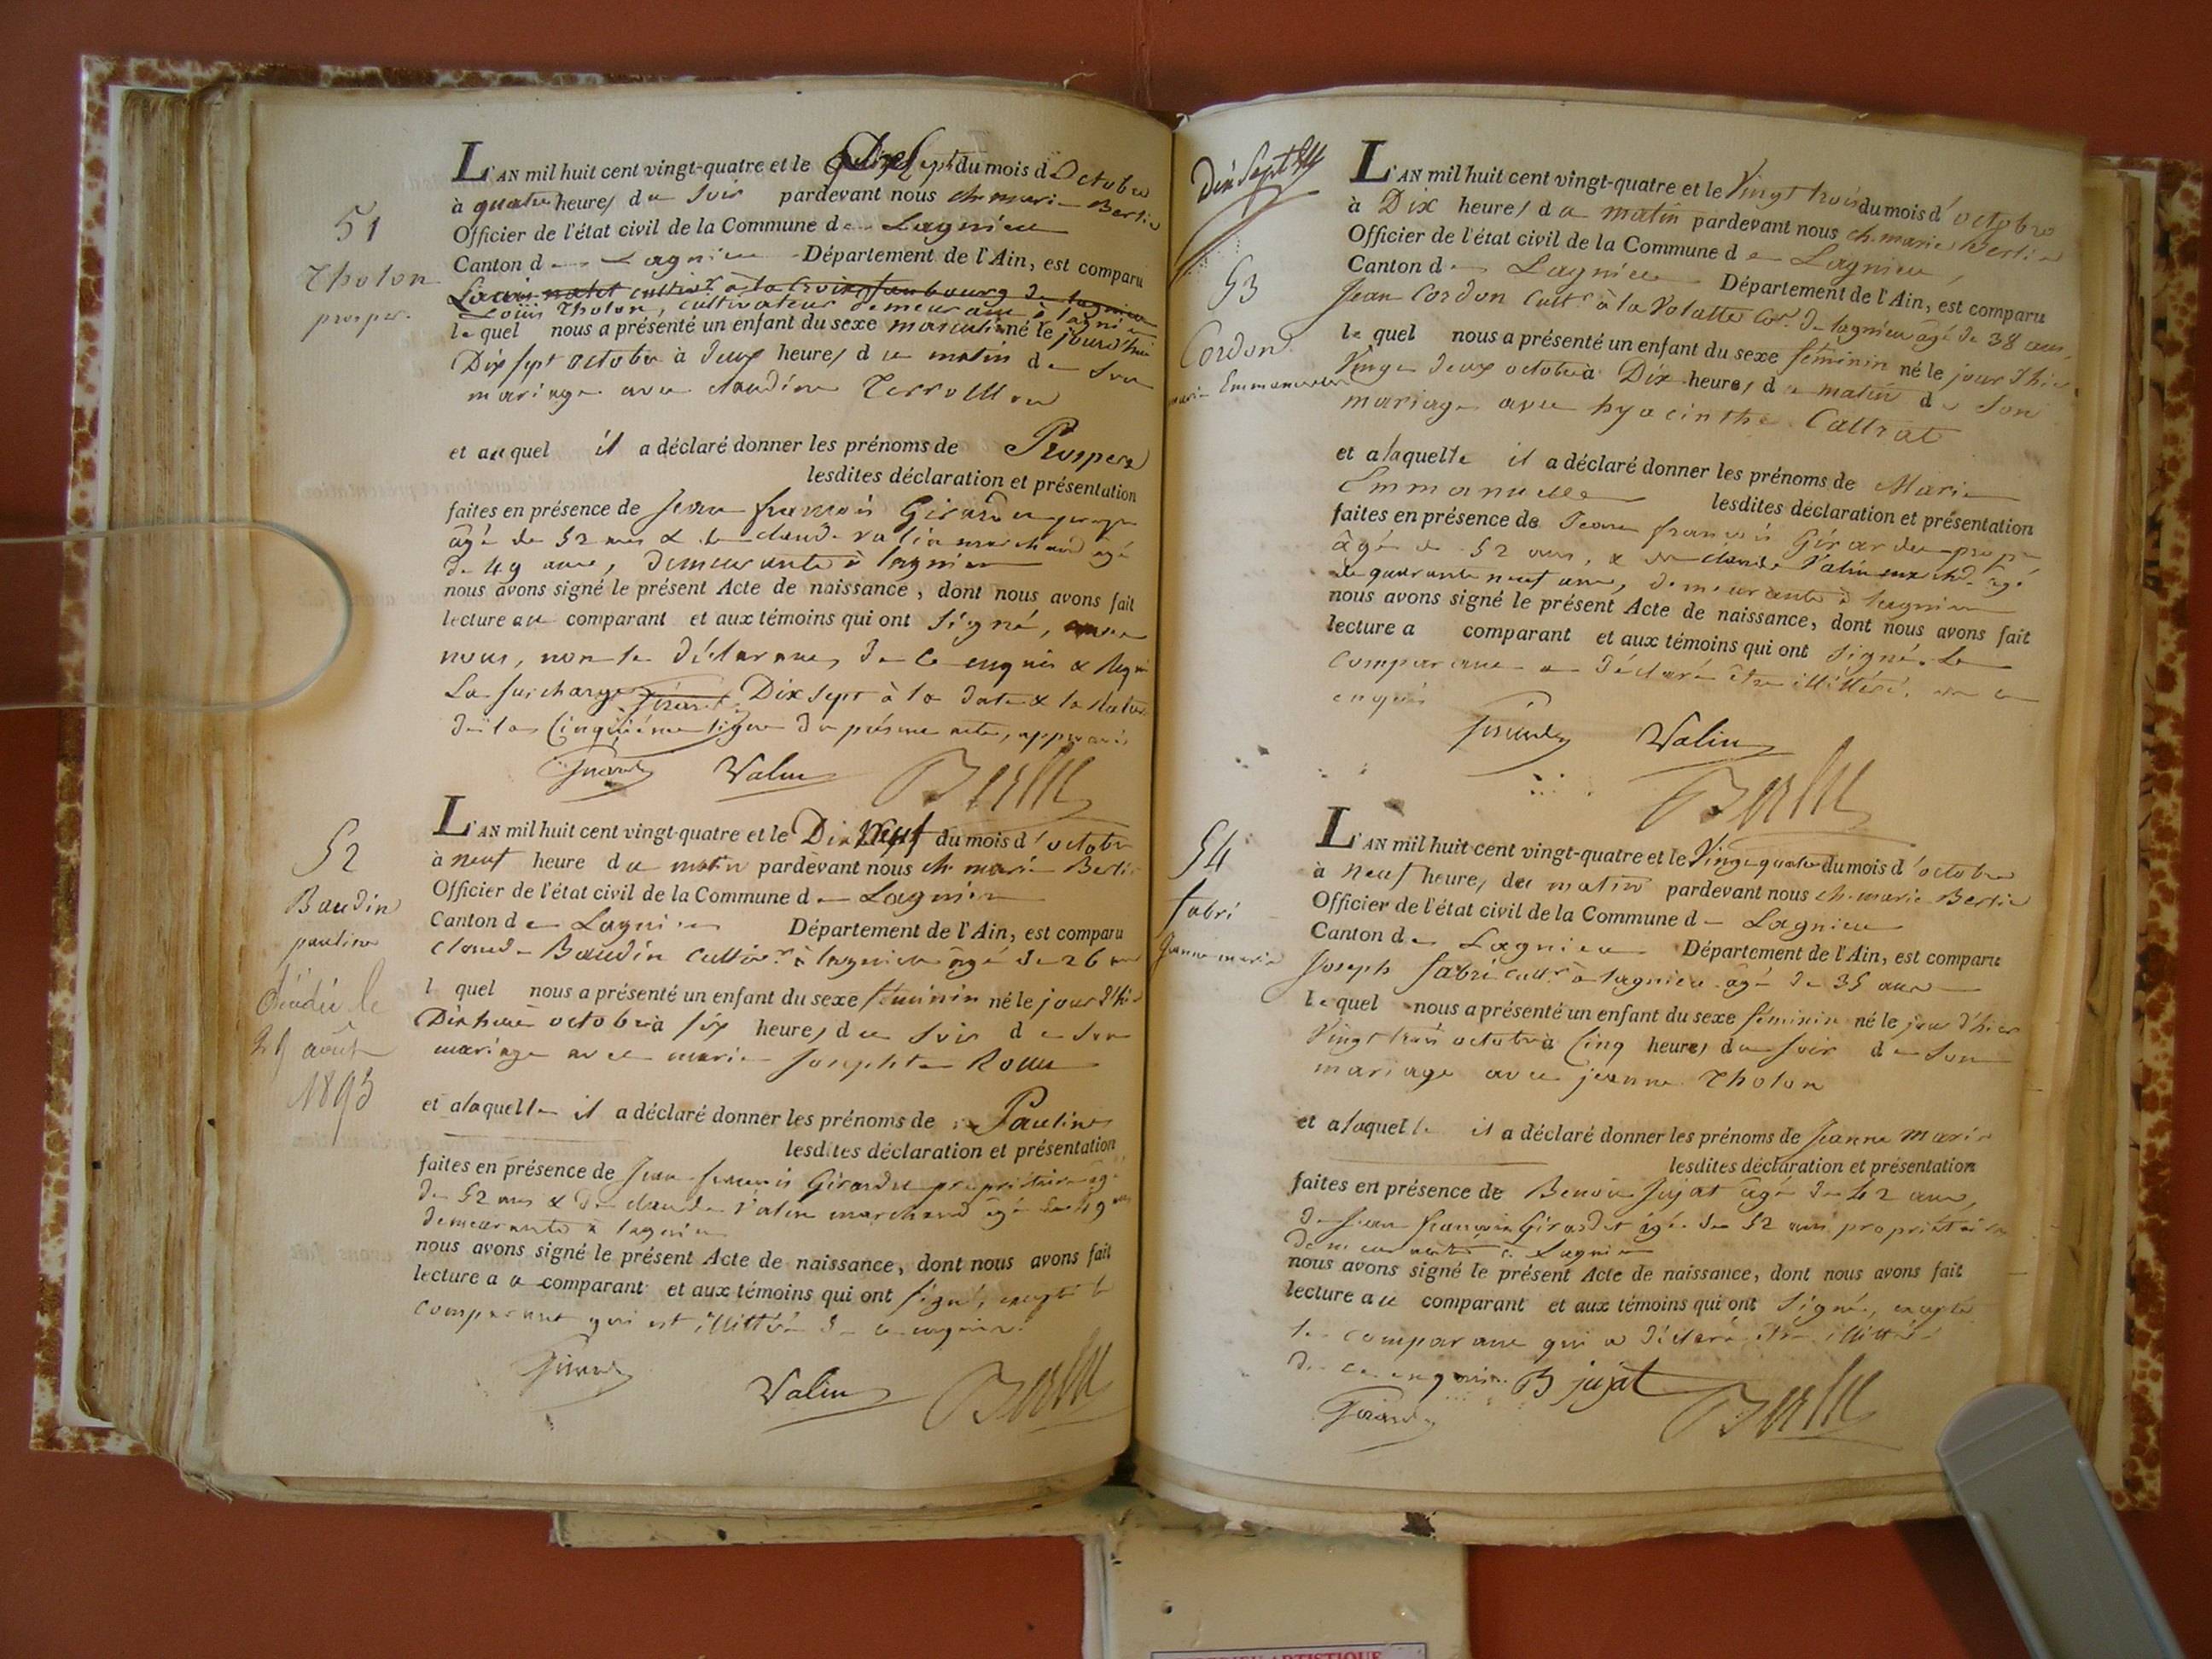 51
Tholon
prosper.
L'AN mil huit cent vingt-quatre et le Dix Sept du mois d'Octobre
à quatre heures du soir pardevant nous ch. marie Berlie
Officier de l'état civil de la Commune de Lagnieu
Canton de Lagnieu Département de l'Ain, est comparu
Louis Tholon, cultivateur demeurant à lagnieu
lequel nous a présenté un enfant du sexe masculin né le jourd'hui
Dix sept octobre à deux heures du matin de son
mariage avec claudine
et auquel il a déclaré donner les prénoms de Prosper
lesdites déclaration et présentation
faites en présence de Jean françois Girardet
âgé de 52 ans & de claude valin marchand âgé
de 49 ans, demeurants à lagnieu
nous avons signé le présent Acte de naissance, dont nous avons fait
lecture au comparant et aux témoins qui ont signé, avec
nous, non le déclarant, de ce enquis &
La surcharge Dix sept à la date & la
de la cinquième ligne du présent acte, approuvés
Valin
52
Baudin
pauline
Décédée le
29 août
1893
L'AN mil huit cent vingt-quatre et le Dix Neuf du mois d'octobre
à neuf heure du matin pardevant nous ch. marie Berlie
Officier de l'état civil de la Commune de Lagnieu
Canton de Lagnieu Département de l'Ain, est comparu
Claude Baudin cultivr à lagnieu âgé de 26 ans
l quel nous a présenté un enfant du sexe féminin né le jour d'hier
Dix huit octobre à six heures du soir de son
mariage avec marie Josephte Roux
et alaquelle il a déclaré donner les prénoms de Pauline
lesdites déclaration et présentation
faites en présence de Jean francois Girardet propriétaire âgé
de 52 ans & de claude Valin marchand âgé de 49 ans
demeurants à lagnieu
nous avons signé le présent Acte de naissance, dont nous avons fait
lecture au comparant et aux témoins qui ont signé, excepté le
comparant qui est illittéré de ce enquis.
Valin
Dix Sept
53
Cordon
marie Emmanuelle
L'AN mil huit cent vingt-quatre et le Vingt trois du mois d'octobre
à Dix heures du matin pardevant nous ch. marie Berlie
Officier de l'état civil de la Commune de Lagnieu,
Canton de Lagnieu Département de l'Ain, est comparu
Jean Cordon cultr à la Volatte de lagnieu âgé de 38 ans,
lequel nous a présenté un enfant du sexe féminin né le jour d'hier
Vingt deux octobre à Dix heures du matin de son
mariage avec hyacinthe Cattrat
et alaquelle il a déclaré donner les prénoms de Marie
Emmanuelle lesdites déclaration et présentation
faites en présence de Jean françois Girardet
âgé de 52 ans, & de claude Valin md. âgé
de quarante neuf ans, demeurants à lagnieu
nous avons signé le présent Acte de naissance, dont nous avons fait
lecture a comparant et aux témoins qui ont signé. Le
comparant a déclaré être illittéré, de ce
enquis
Valin
54
fabri
Jeanne marie
L'AN mil huit cent vingt-quatre et le Vingt quatre du mois d'octobre
à neuf heures du matin pardevant nous ch. marie Berlie
Officier de l'état civil de la Commune de Lagnieu
Canton de Lagnieu Département de l'Ain, est comparu
Joseph fabri cultr à lagnieu âgé de 35 ans
lequel nous a présenté un enfant du sexe féminin né le jour d'hier
Vingt trois octobre à Cinq heures du soir de son
mariage avec jeanne Tholon
et alaquelle il a déclaré donner les prénoms de Jeanne marie
lesdites déclaration et présentation
faites en présence de Benoit Jujat âgé de 42 ans,
de Jean françois Girardet âgé de 52 ans propriétaires
demeurants à Lagnieu
nous avons signé le présent Acte de naissance, dont nous avons fait
lecture au comparant et aux témoins qui ont signé, excepté
le comparant qui a déclaré être illittéré
de ce enquis. B jujat